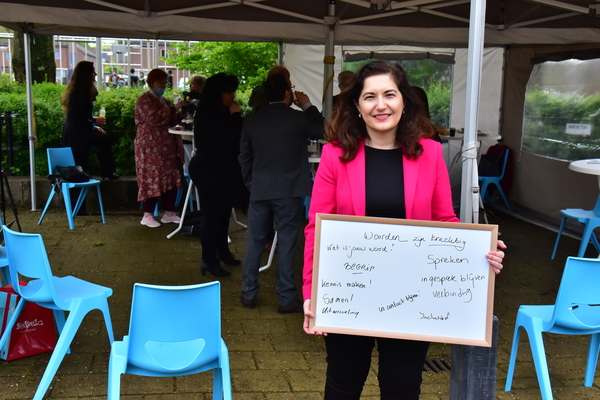 Woorden zijn krachtig
Wat is jouw woord?
BEGRIP
Kennis maken!
Samen!
Spreken
in gesprek blijven
verbinding
in contact blijven